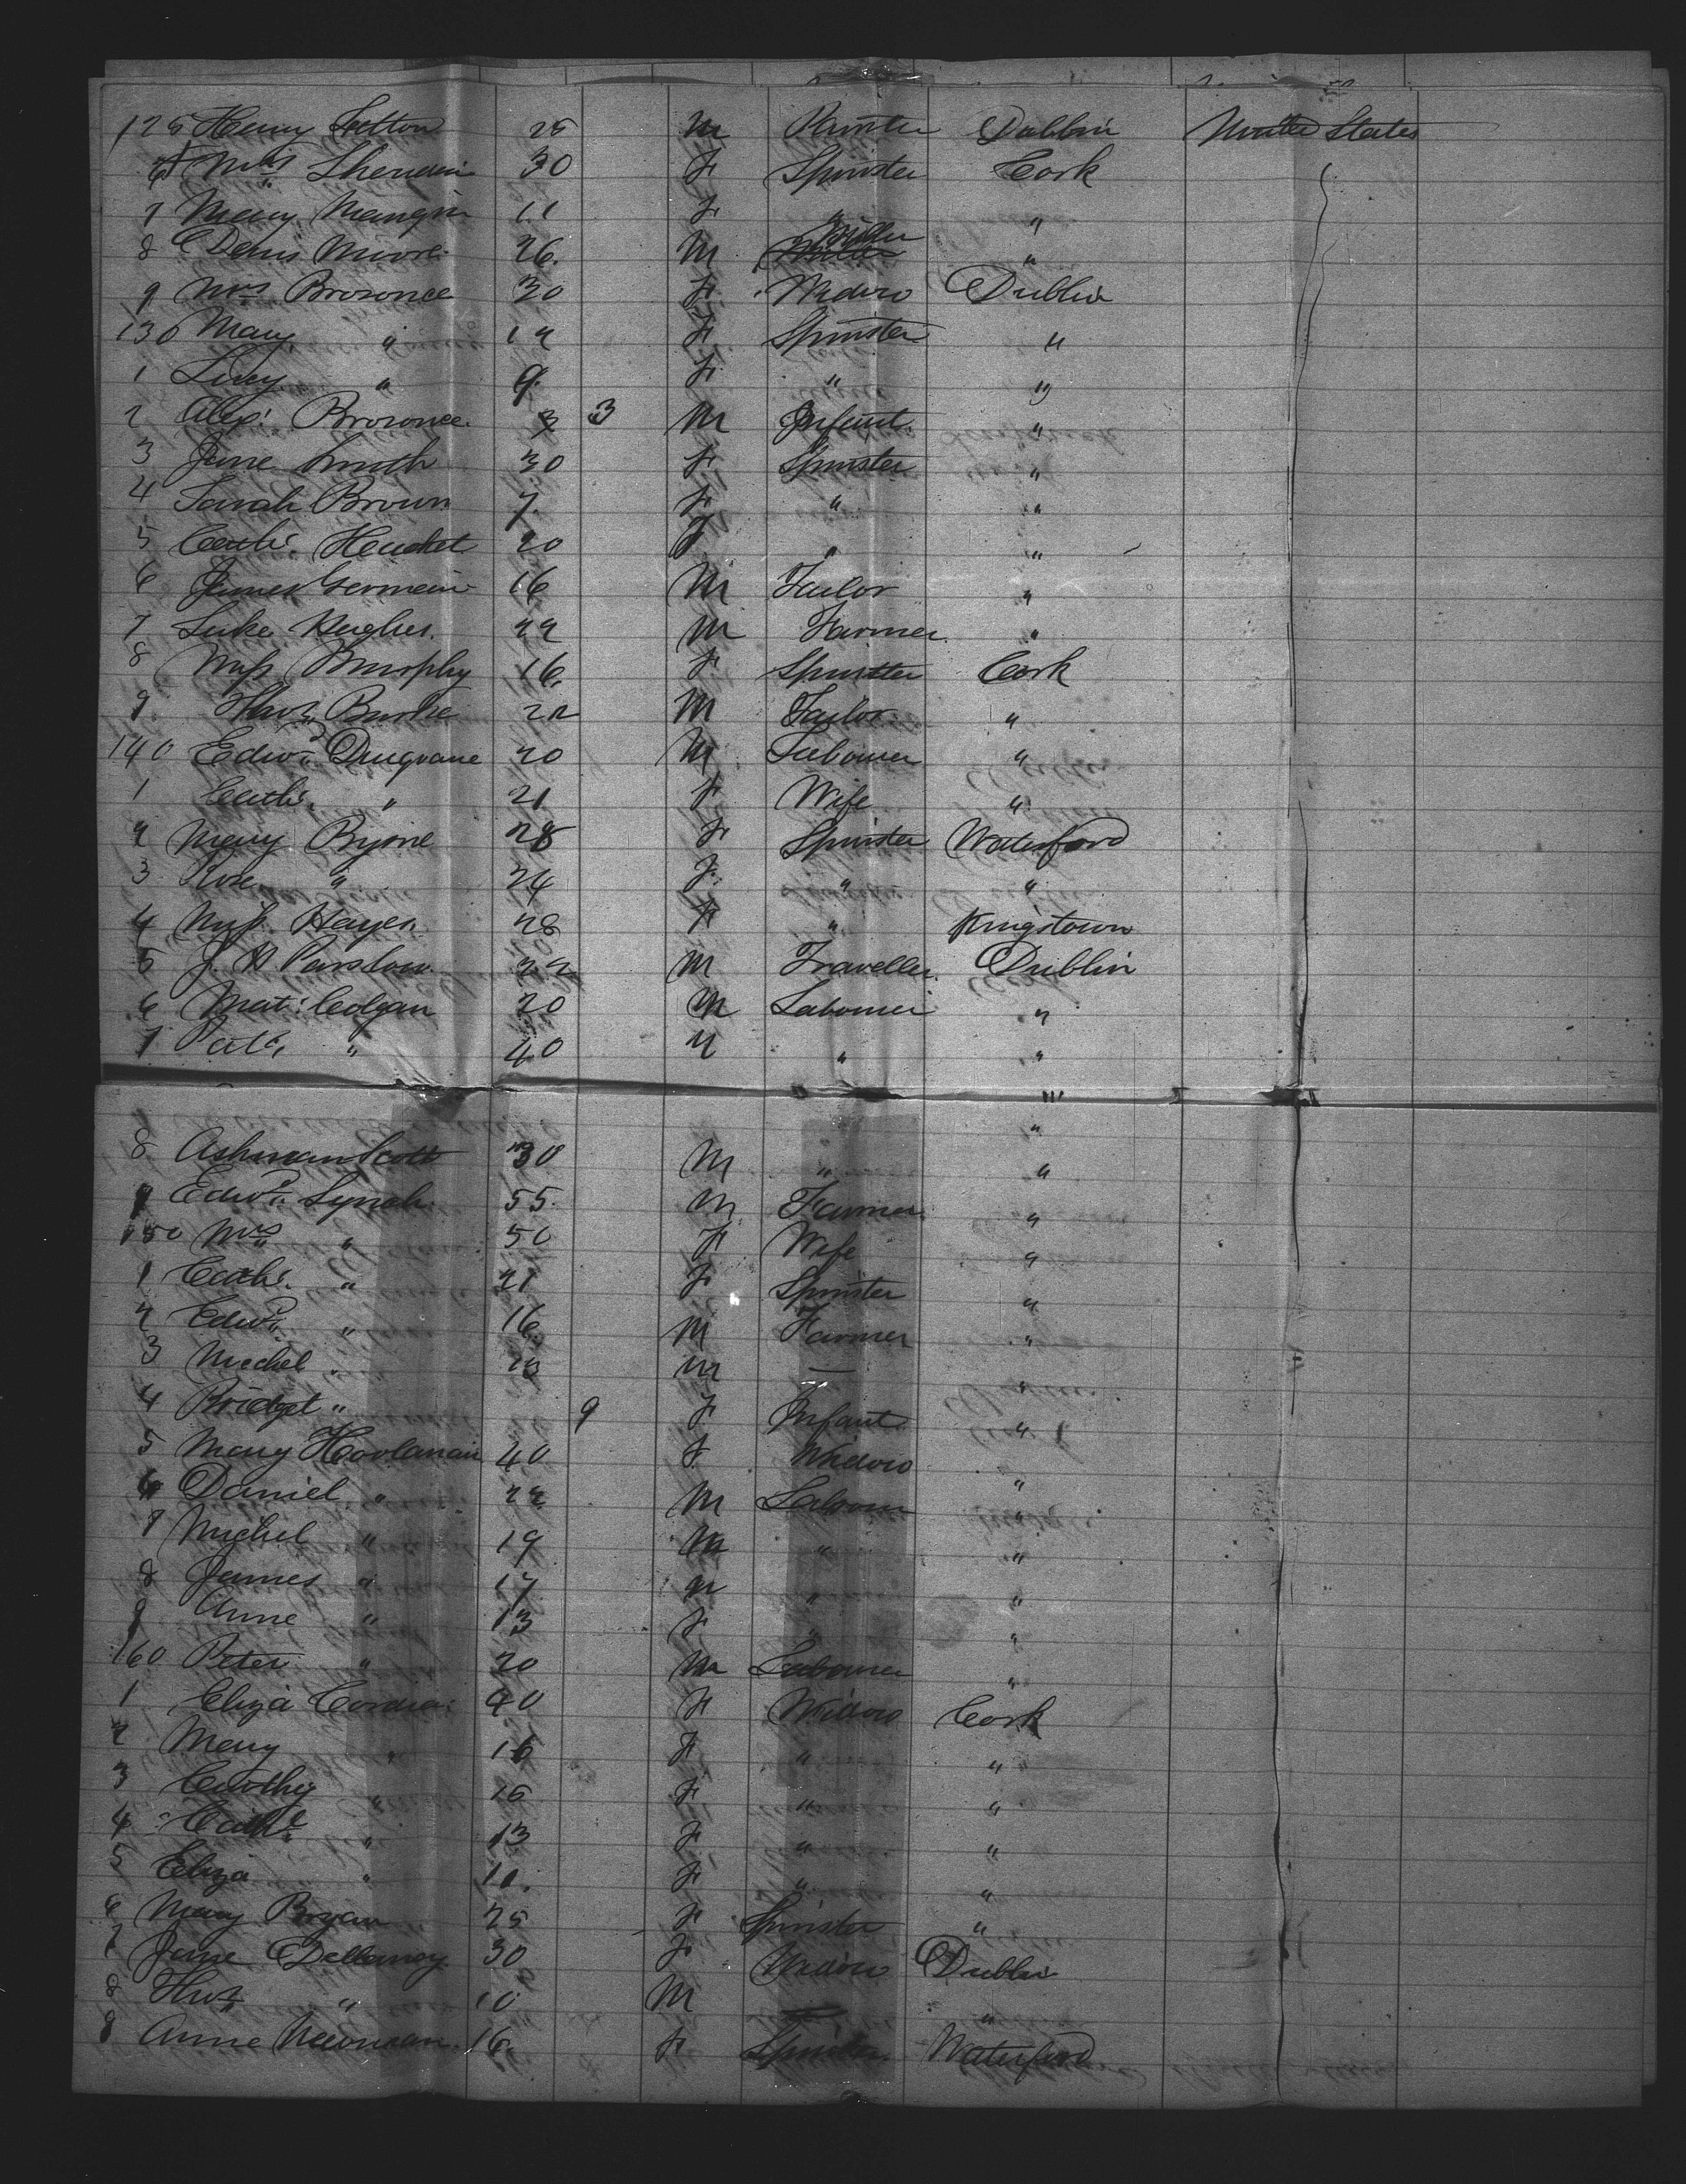 125 Henry Sutton 25 M Painter Dublin United States
6 Mrs 30 F Spinster Cork
7 Mary Mangin 11 F " "
8 Denis Moore 26 M "
9 Mrs Brownee 30 F Widow Dublin
130 Mary " 12 F Spinster "
1 Lucy " 9 F " "
2 Alex: Brownee 3 M Infant "
3 Jane Smith 30 F Spinster "
4 Sarah Brown 7 F " "
5 Cath: 20 F " "
6 James Germain 16 M Tailor "
7 Luke Hughes 22 M Farmer "
8 Miss Murphy 16 F Spinster Cork
9 Thos Burke 22 M Tailor "
140 Edwd 20 M Labourer "
1 Cathe " 21 F Wife "
2 Mary Byrne 28 F Spinster Waterford
3 Rose " 24 F " "
4 Miss Hayes 28 F " Kingstown
5 J. Parslow 22 M Traveller Dublin
6 Mat: Colgan 20 M Labourer "
7 Patk " 40 M " "
8 Ashman Scott 30 M " "
9 Edwd Lynch 55 M Farmer "
150 Mrs " 50 F Wife "
1 Cathe " 21 F Spinster "
2 Edwd " 16 M Farmer "
3 Michel " M — "
4 Bridget " 9 F Infant "
5 Mary Hoolanain 40 F Widow "
6 Daniel " 22 M Labour "
7 Michel " 19 M " "
8 James " 17 M " "
9 Anne " 13 F " "
160 Peter " 20 M Labourer "
1 Eliza 40 F Widow Cork
2 Mary " 16 F " "
3 " F " "
4 Cathe " 13 F " "
5 Eliza " F " "
6 Mary Bryan 25 F Spinster "
7 Jane Dellaney 30 F Widow Dublin
8 Thos " 10 M "
9 Anne Newman 16 F Spinster Waterford